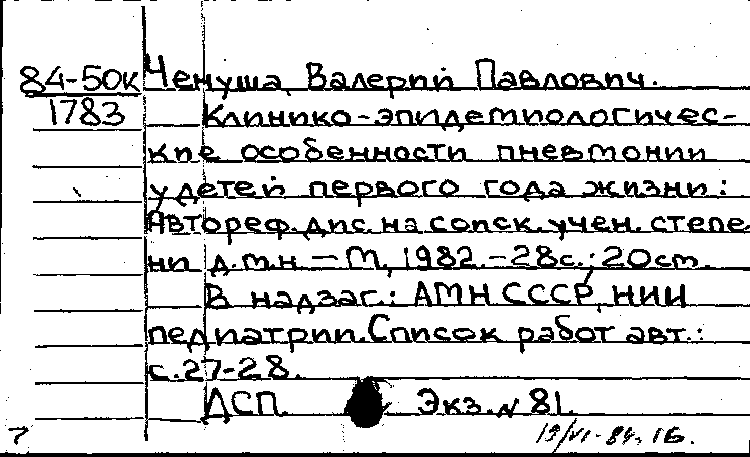 84-50к
1783
Чемуша, Валерий Павлович.
Клинико-эпидемиологичес-
кие особенности пневмонии
у детей первого года жизни:
Автореф. дис. на соиск. учен. степе
ни д.м.н. — М., 1982. - 28с.; 20см.
В надзаг.: АМН СССР, НИИ
педиатрии. Список работ авт.:
с. 27-28.
ДСП. Экз. № 81.
7
19/VI-84. 1Б.